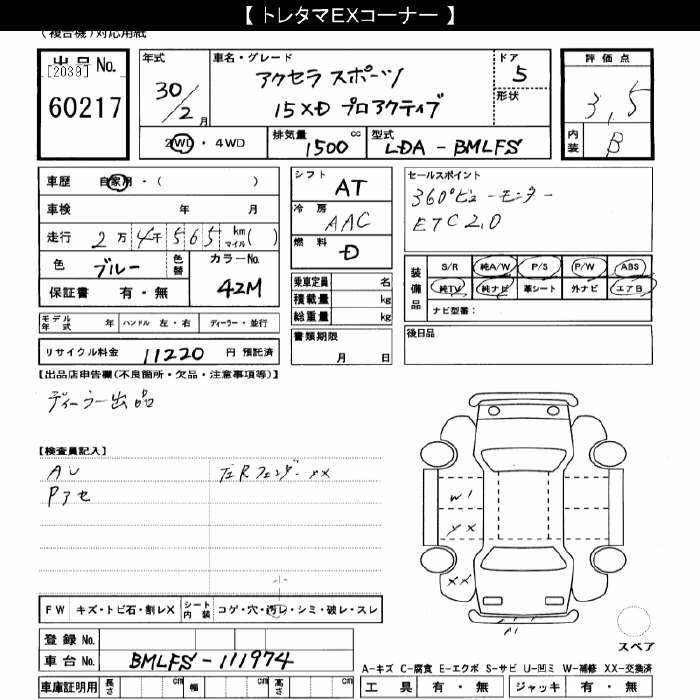 【 トレタマEXコーナー 】
(複合機)対応用紙
出品 No. [2039] 60217
年式 30/2 月
車名・グレード アクセラ スポーツ 15XD プロアクティブ
ドア 5
形状
評価点 3,5
内装 B
2WD・4WD
排気量 1500 cc
型式 LDA - BMLFS
車歴 自家用・( )
車検 年 月
走行 2万 4千 5 6 5 km マイル ( )
色 ブルー
色替
カラーNo. 42M
保証書 有・無
シフト AT
冷房 AAC
燃料 D
乗車定員 名
積載量 kg
総重量 kg
書類期限 月 日
セールスポイント
360°ビューモニター
ETC 2.0
装備品
S/R 純A/W P/S P/W ABS
純TV 純ナビ 革シート 外ナビ エアB
ナビ型番：
後日品
モデル年式 年 ハンドル 左・右 ディーラー・並行
リサイクル料金 11220 円 預託済
【出品店申告欄(不良箇所・欠品・注意事項等)】
ディーラー出品
【検査員記入】
AU 左Rフェンダー XX
Pアセ
W1
XX
A1
小
FW キズ・トビ石・割レX シート内装 コゲ・穴・汚レ・シミ・破レ・スレ
登録 No.
車台 No. BMLFS-111974
車庫証明用 長さ cm 幅 cm 高さ cm
スペア
A-キズ C-腐食 E-エクボ S-サビ U-凹ミ W-補修 XX-交換済
工具 有・無 ジャッキ 有・無